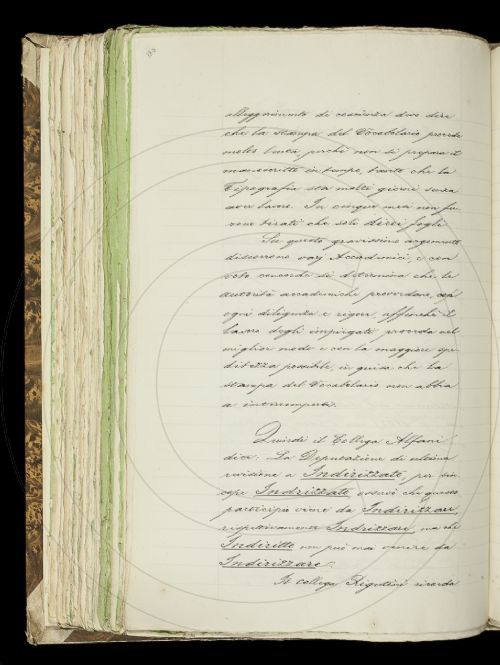 alleggerimento di coscienza deve dire
che la stampa del Vocabolario procede
molto lenta, perchè non si prepara il
manoscritto in tempo, tanto che la
Tipografia sta molti giorni senza
aver lavoro. In cinque mesi non fu-
rono tirati che soli dieci fogli.
Su questo gravissimo argomento
discorrono varj Accademici, e con
voto concorde si determina che le
autorità accademiche provvedano, con
ogni diligenza e rigore, affinchè il
lavoro degli impiegati proceda nel
miglior modo e con la maggiore spe-
ditezza possibile, in guisa che la
stampa del Vocabolario non abbia
a interrompersi.
Quindi il Collega Alfani
dice: La Deputazione di ultima
revisione a Indirizzato, per sin-
cope Indrizzato osservò che questo
participio viene da Indirizzare
rispettivamente Indrizzare, ma che
Indiritto non può mai venire da
Indirizzare.
Il collega Rigutini ricorda